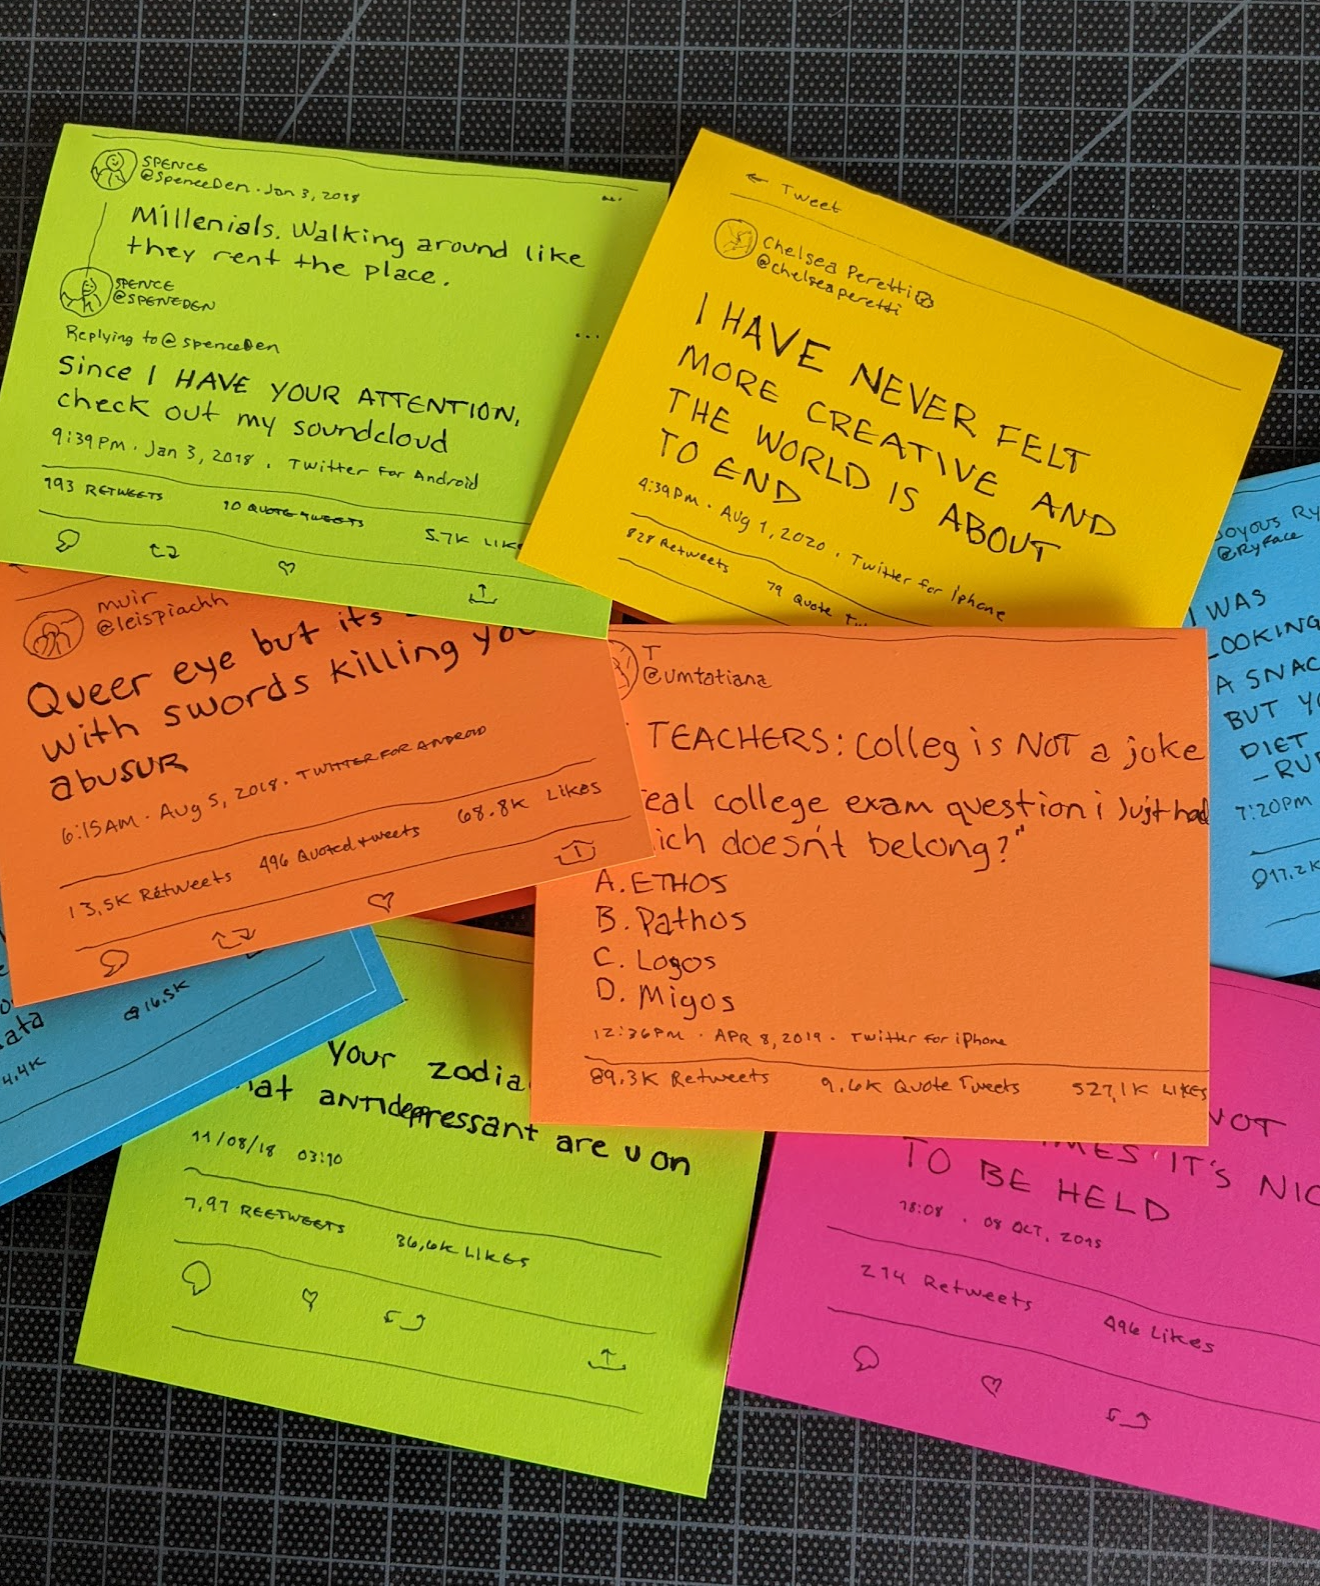 SPENCE
@SpenceDen · Jan 3, 2018
Millenials. Walking around like
they rent the place.
SPENCE
@SPENEDEN
Replying to @spenceDen
Since I HAVE YOUR ATTENTION,
check out my soundcloud
9:39PM · Jan 3, 2018 · Twitter for Android
193 RETWEETS 10 QUOTE TWEETS 5.7K LIKE
← Tweet
Chelsea Peretti
@chelseaperetti
I HAVE NEVER FELT
MORE CREATIVE AND
THE WORLD IS ABOUT
TO END
4:39PM · Aug 1, 2020 · Twitter for iphone
828 Retweets 79 Quote
muir
@leispiachh
Queer eye but its
with swords killing you
abusUR
6:15AM · Aug 5, 2018 · TWITTER FOR ANDROID
13,5K Retweets 496 Quoted tweets 68.8K Likes
T
@umtatiana
TEACHERS: Colleg is NOT a joke
eal college exam question i Jujt had
ich doesn't belong?"
A. ETHOS
B. Pathos
C. Logos
D. Migos
12:36PM · APR 8, 2019 · Twitter for iPhone
89.3K Retweets 9.6K Quote Tweets 527,1K LIKES
oyous Ry
@Ryface
I WAS
LOOKING
A SNAC
BUT YO
DIET
-RU
7:20PM
ata
4.4K 16.5K
Your zodia
hat ANTIdepressant are u on
11/08/18 03:10
7,97 REETWEETS 36,6K LIKES
NOT
IMES IT'S NIC
TO BE HELD
18:08 · 08 OCT, 2015
214 Retweets 496 Likes